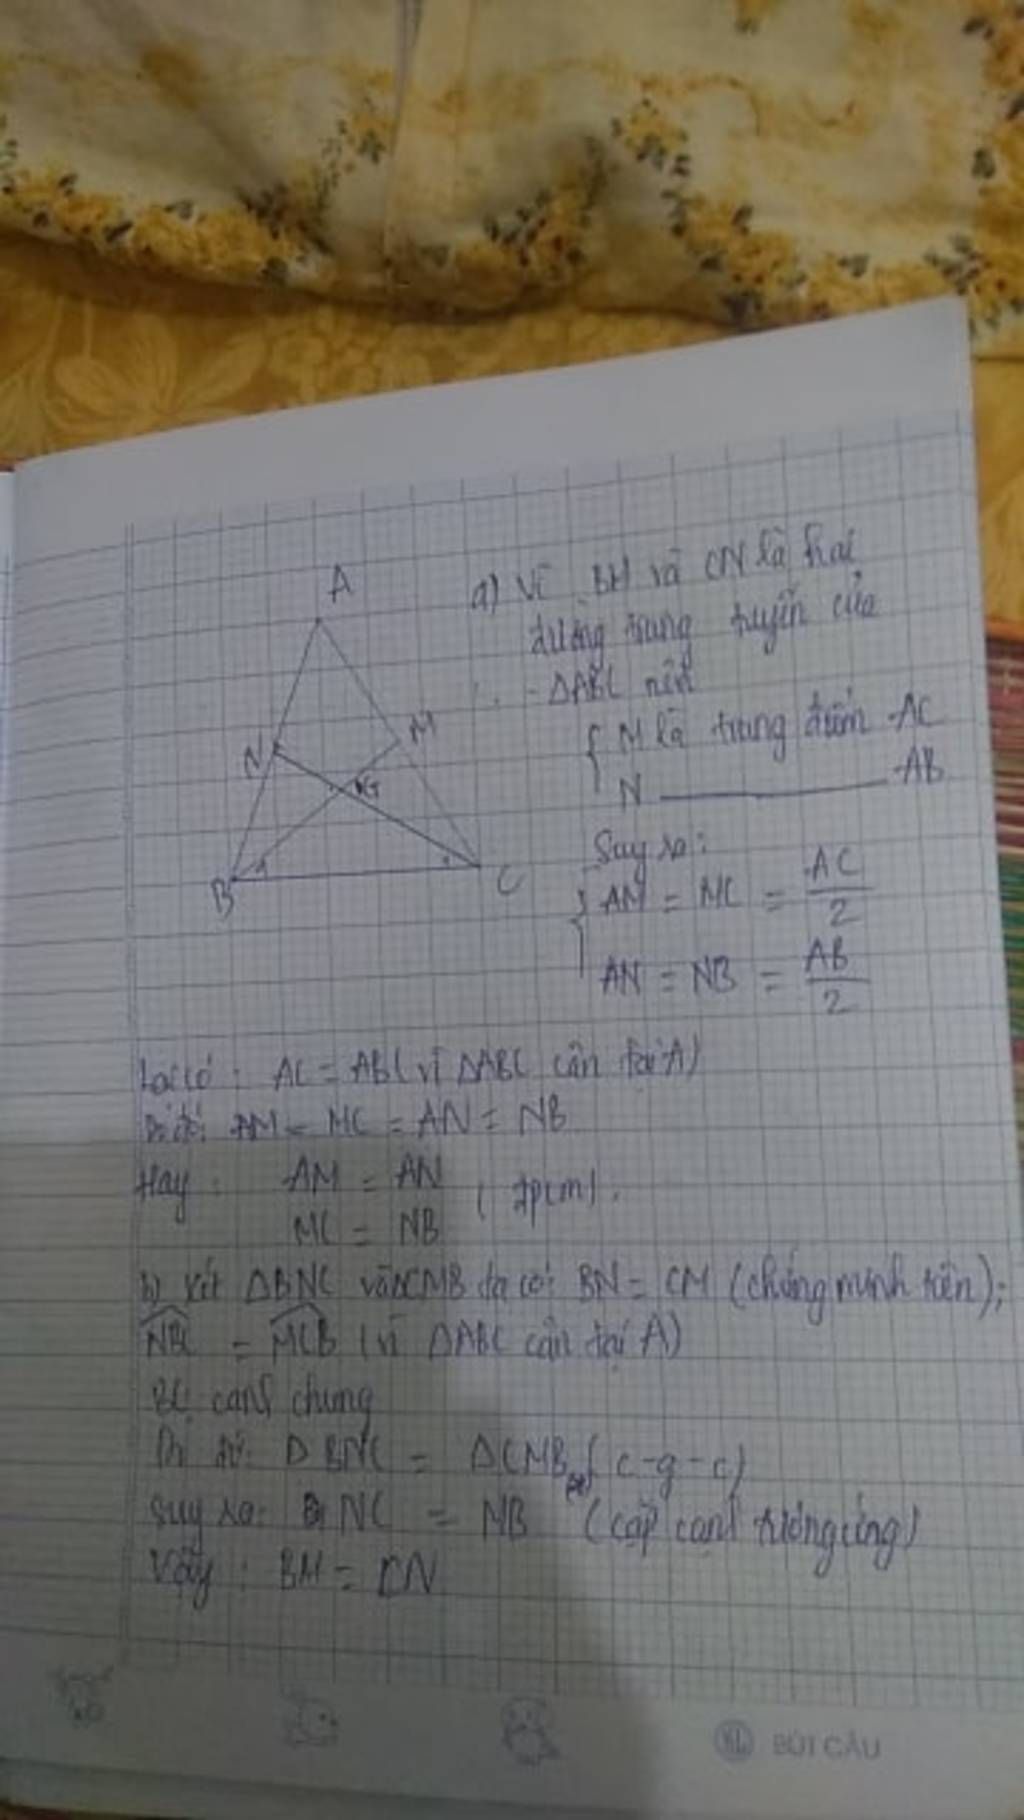 A
N
M
G
B
C
a) Vì BM và CN là hai
đường trung tuyến của
ΔABC nên
{ M là trung điểm AC
N ———— AB
Suy ra:
{ AM = MC = AC/2
AN = NB = AB/2
Lại có : AC = AB (vì ΔABC cân tại A)
Do đó: AM = MC = AN = NB
Hay : AM = AN
MC = NB (đpcm).
b) Xét ΔBNC và ΔCMB ta có: BN = CM (chứng minh trên);
NBC = MCB (vì ΔABC cân tại A)
BC cạnh chung
Do đó: ΔBNC = ΔCMB (c-g-c)
suy ra: NC = MB (cặp cạnh tương ứng)
Vậy : BM = CN
BÚT CÂU